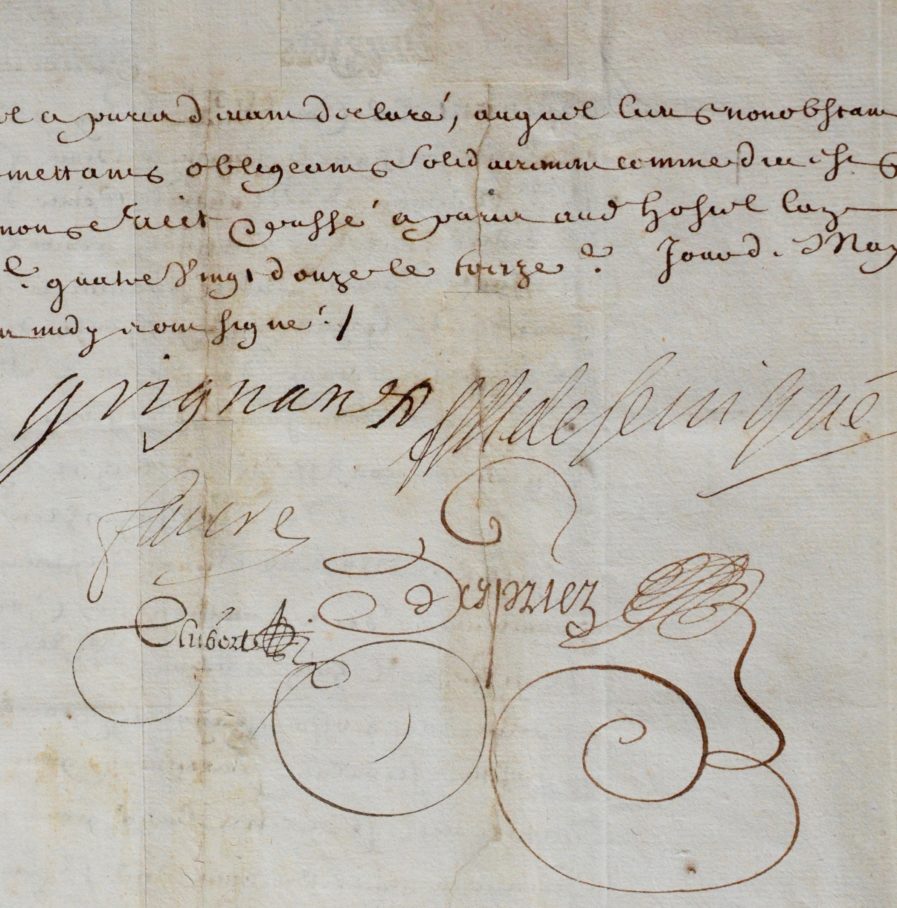 a paris devant declaré, auquel lieu & nonobstant
mettans obligeans solidairement comme dit est &
nons faict & passé a paris aud hostel
quatre vingt douze le treize e. Jour de May
midy et ont signé /
grignan
M de Sevigné
faure
despriez
Aubert